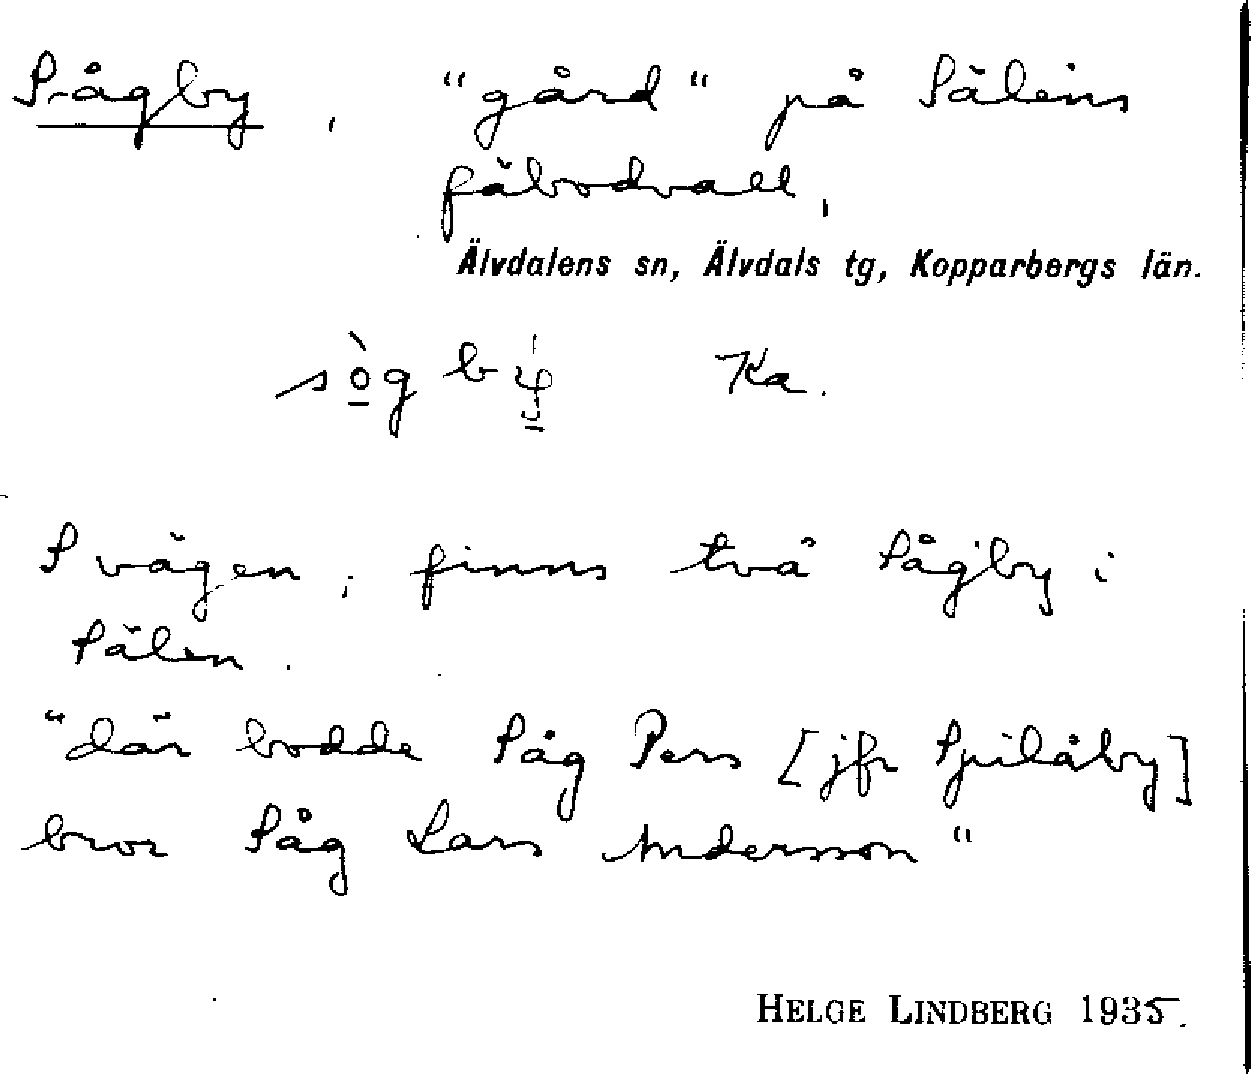 Sågby, "gård" på Sälens
fäbodvall,
Älvdalens sn, Älvdals tg, Kopparbergs län.
Ka.
S vägen; finns två Sågby i
Sälen.
"där bodde Såg Pers [jfr Spilåby]
bror Såg Lars Andersson"
HELGE LINDBERG 1935.